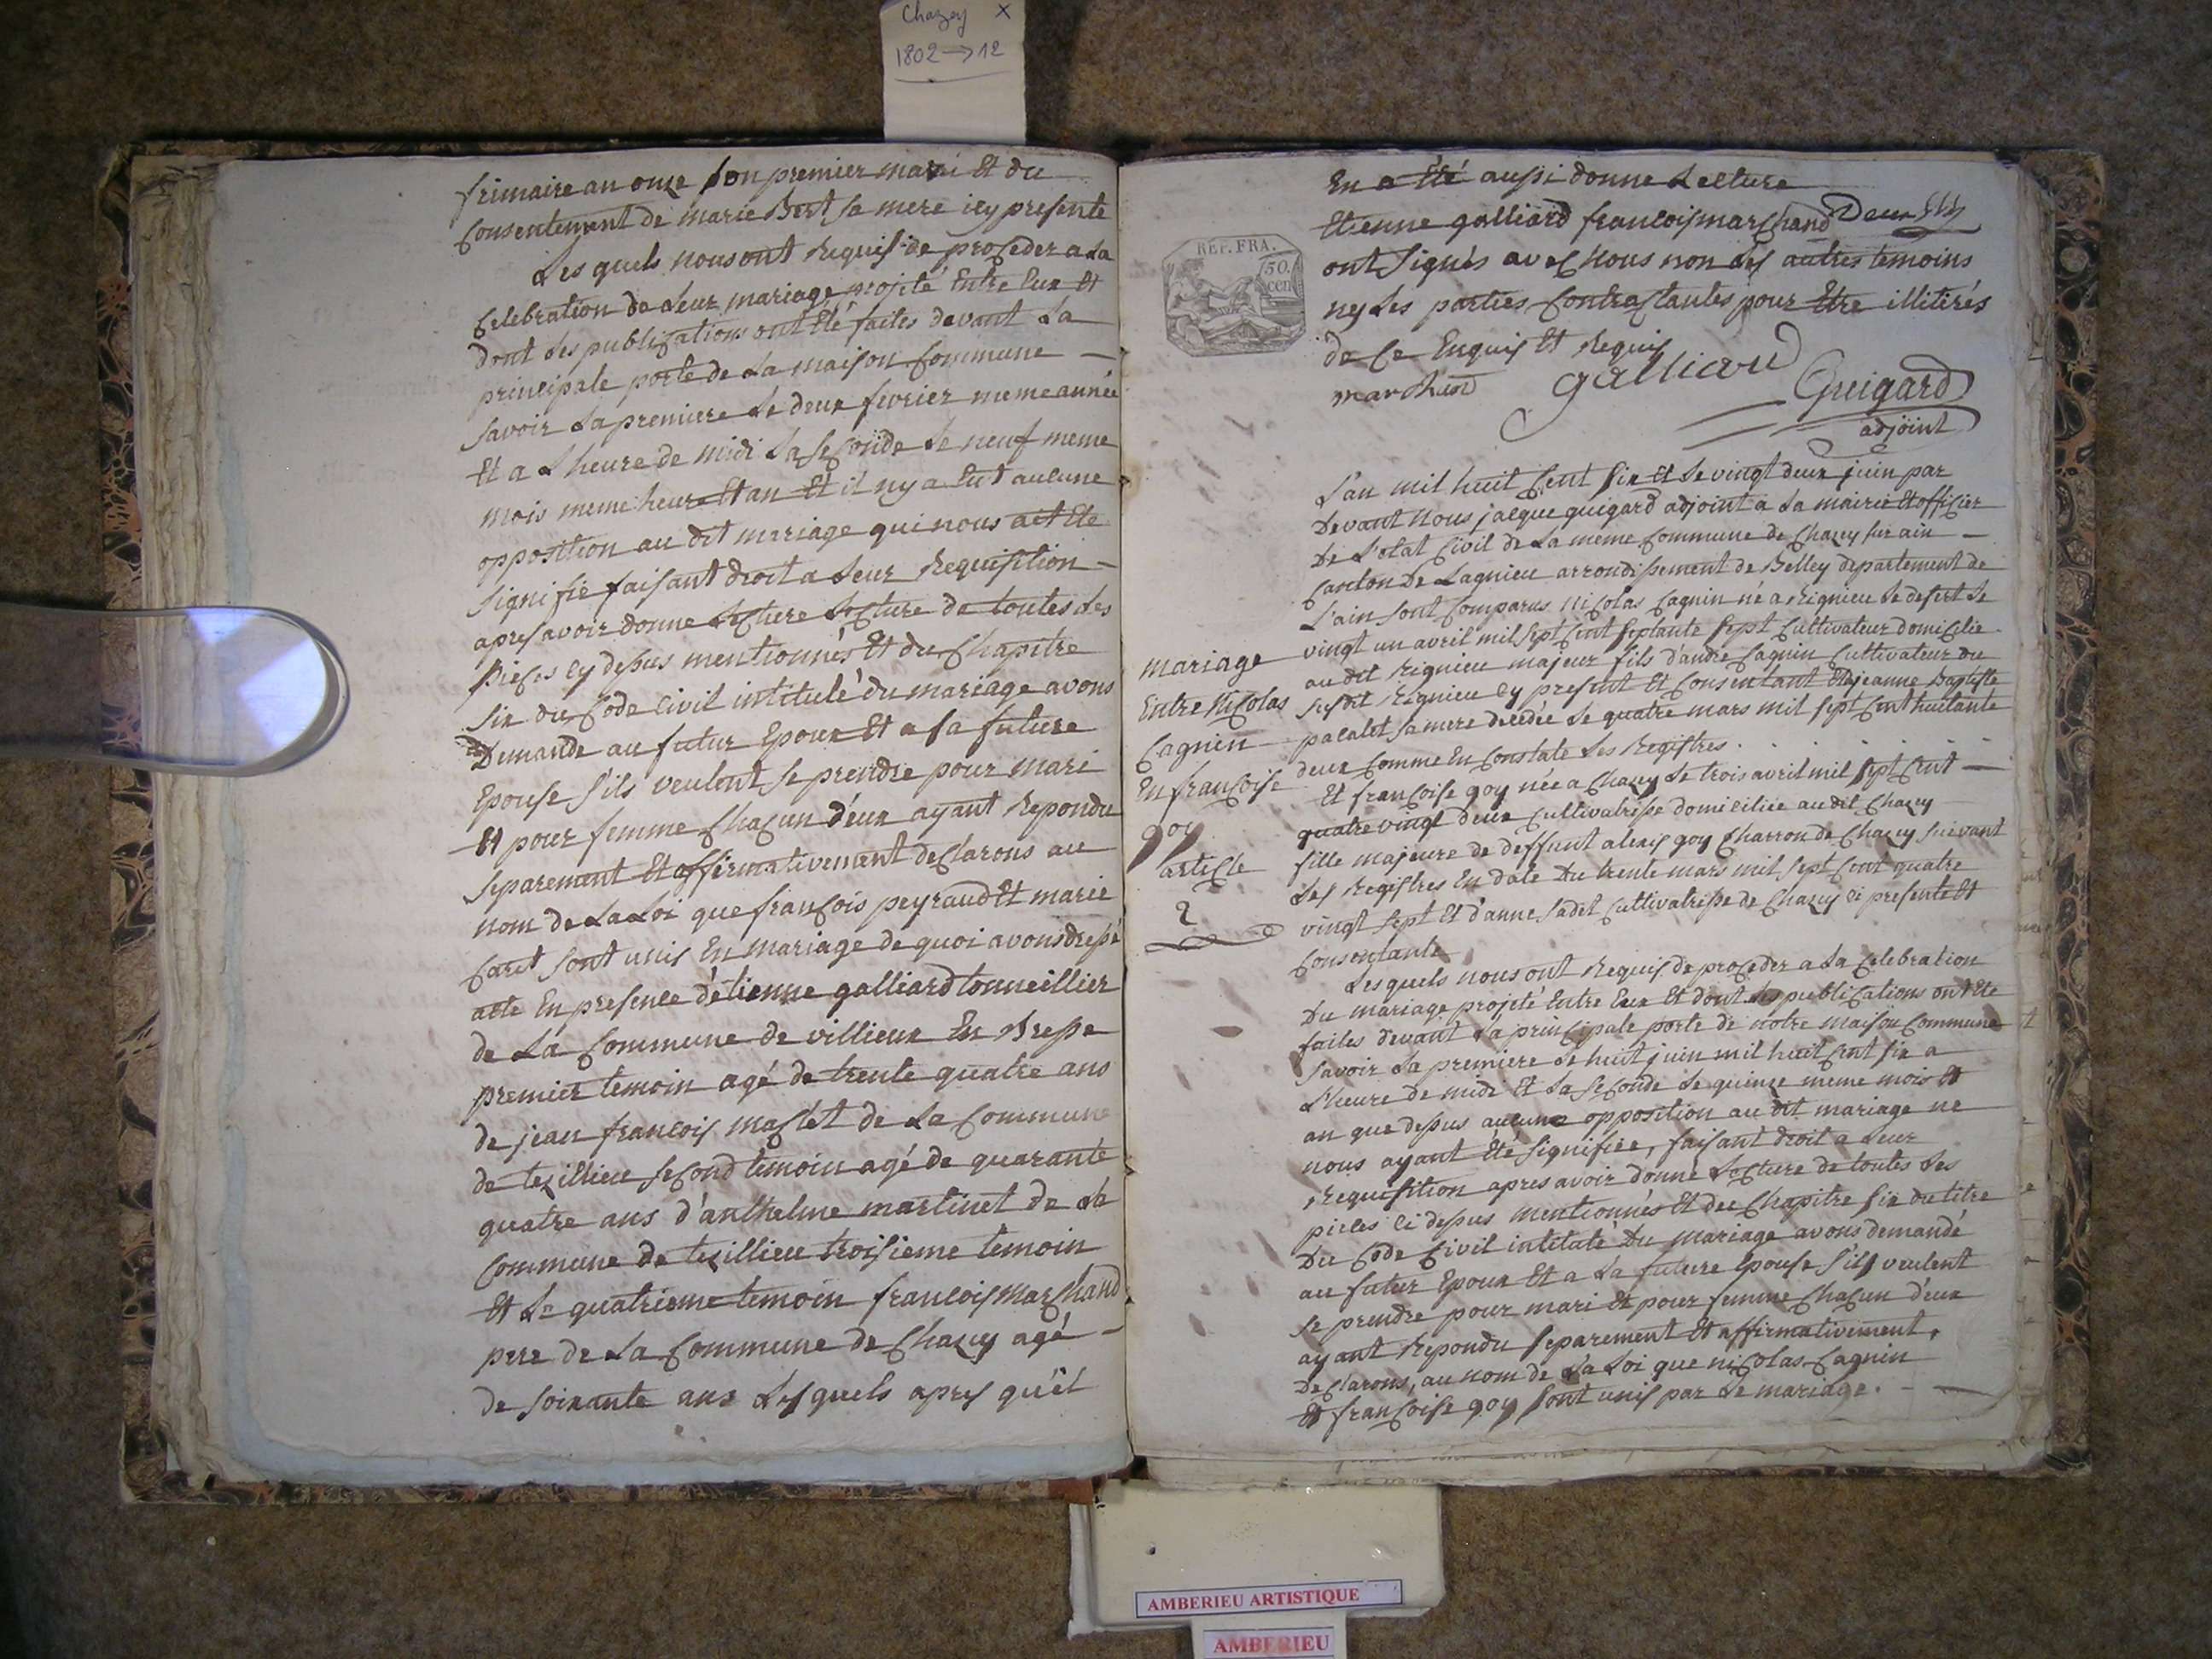 Chazey X
1802 → 12
frimaire an onze son premier mari Et du
Consentement de marie Bert sa mere icy presente
Les quels nous ont Requis de proceder a La
Celebration de Leur mariage projeté Entre Eux Et
dont Les publications ont Eté faites devant La
principale porte de La maison Commune —
savoir La premiere Le deux fevrier meme année
Et a L heure de midi La seconde Le neuf meme
mois meme heure Et an Et il ny a Eut aucune
opposition au dit mariage qui nous ait Ete
signifié faisant droit a Leur Requisition —
apres avoir donne Lecture de toutes Les
pieces cy dessus mentionnés Et du Chapitre
six du Code Civil intitulé du mariage avons
Demande au futur Epoux Et a sa future
Epouse s'ils veulent se prendre pour mari
Et pour femme Chacun d'eux ayant Repondu
separement Et affirmativement declarons au
nom de La Loi que françois peyraud Et marie
Caret sont unis En mariage de quoi avons dressé
acte En presence d'étienne galliard tonneillier
de La Commune de villieux En Bresse
premier temoin agé de trente quatre ans
de jean françois maclet de La Commune
de tezillieu second temoin agé de quarante
quatre ans d'anthelme martinet de La
Commune de tezillieu troisieme temoin
Et Le quatrieme temoin francois marchand
pere de La Commune de Chazey agé —
de soixante ans Lesquels apres qu'il
En a Eté aussi donne Lecture
Etienne galliard francois marchand Deux
ont signés avec nous non Les autres temoins
ny Les parties Contractantes pour Etre illitirés
de Ce Enquis Et Requis
REP. FRA.
50.
cen
marchand galliard Guigard
adjoint
L'an mil huit Cent six Et Le vingt deux juin par
Devant Nous jacque guigard adjoint a La mairie Et officier
De L'etat Civil de La meme Commune de Chazey sur ain —
Canton De Lagnieu arrondissement de Belley departement de
L'ain sont Comparus Nicolas Cagnin né a Rignieu Le desert Le
vingt un avril mil sept Cent septante sept Cultivateur domicilie
au dit Rignieu majeur fils d'andré Cagnin Cultivateur du
susdit Rignieu Cy present Et Consentant Et de jeanne Baptiste
pacalet sa mere decedée Le quatre mars mil sept Cent huitante
deux Comme En Constate Les Registres.
mariage
Entre Nicolas
Cagnin
En françoise
goy
article
2
Et françoise goy née a Chazey Le trois avril mil sept Cent —
quatre vingt deux Cultivatrisse domiciliée au dit Chazey
fille majeure de deffunt alexis goy Charron de Chazey suivant
Les Registres En date Du trente mars mil sept Cent quatre
vingt sept Et d'anne sadet Cultivatrisse de Chazey ci presente Et
Consentante
Les quels nous ont Requis de proceder a La Celebration
Du mariage projeté Entre Eux Et dont Les publications ont Ete
faites devant La principale porte de notre maison Commune
savoir La premiere Le huit juin mil huit Cent six a
L'heure de midi Et La seconde Le quinze meme mois Et
an que dessus aucune opposition au dit mariage ne
nous ayant Eté signifiée, faisant droit a Leur
Requisition apres avoir donné Lecture de toutes Les
pieces ci dessus mentionnés Et du Chapitre six du titre
Du Code Civil intitulé Du mariage avons demandé
au futur Epoux Et a La future Epouse s'ils veulent
se prendre pour mari Et pour femme Chacun d'eux
ayant Repondu separement Et affirmativement,
Declarons, au nom de La Loi que nicolas Cagnin
Et françoise goy sont unis par Le mariage. —
AMBERIEU ARTISTIQUE
AMBERIEU